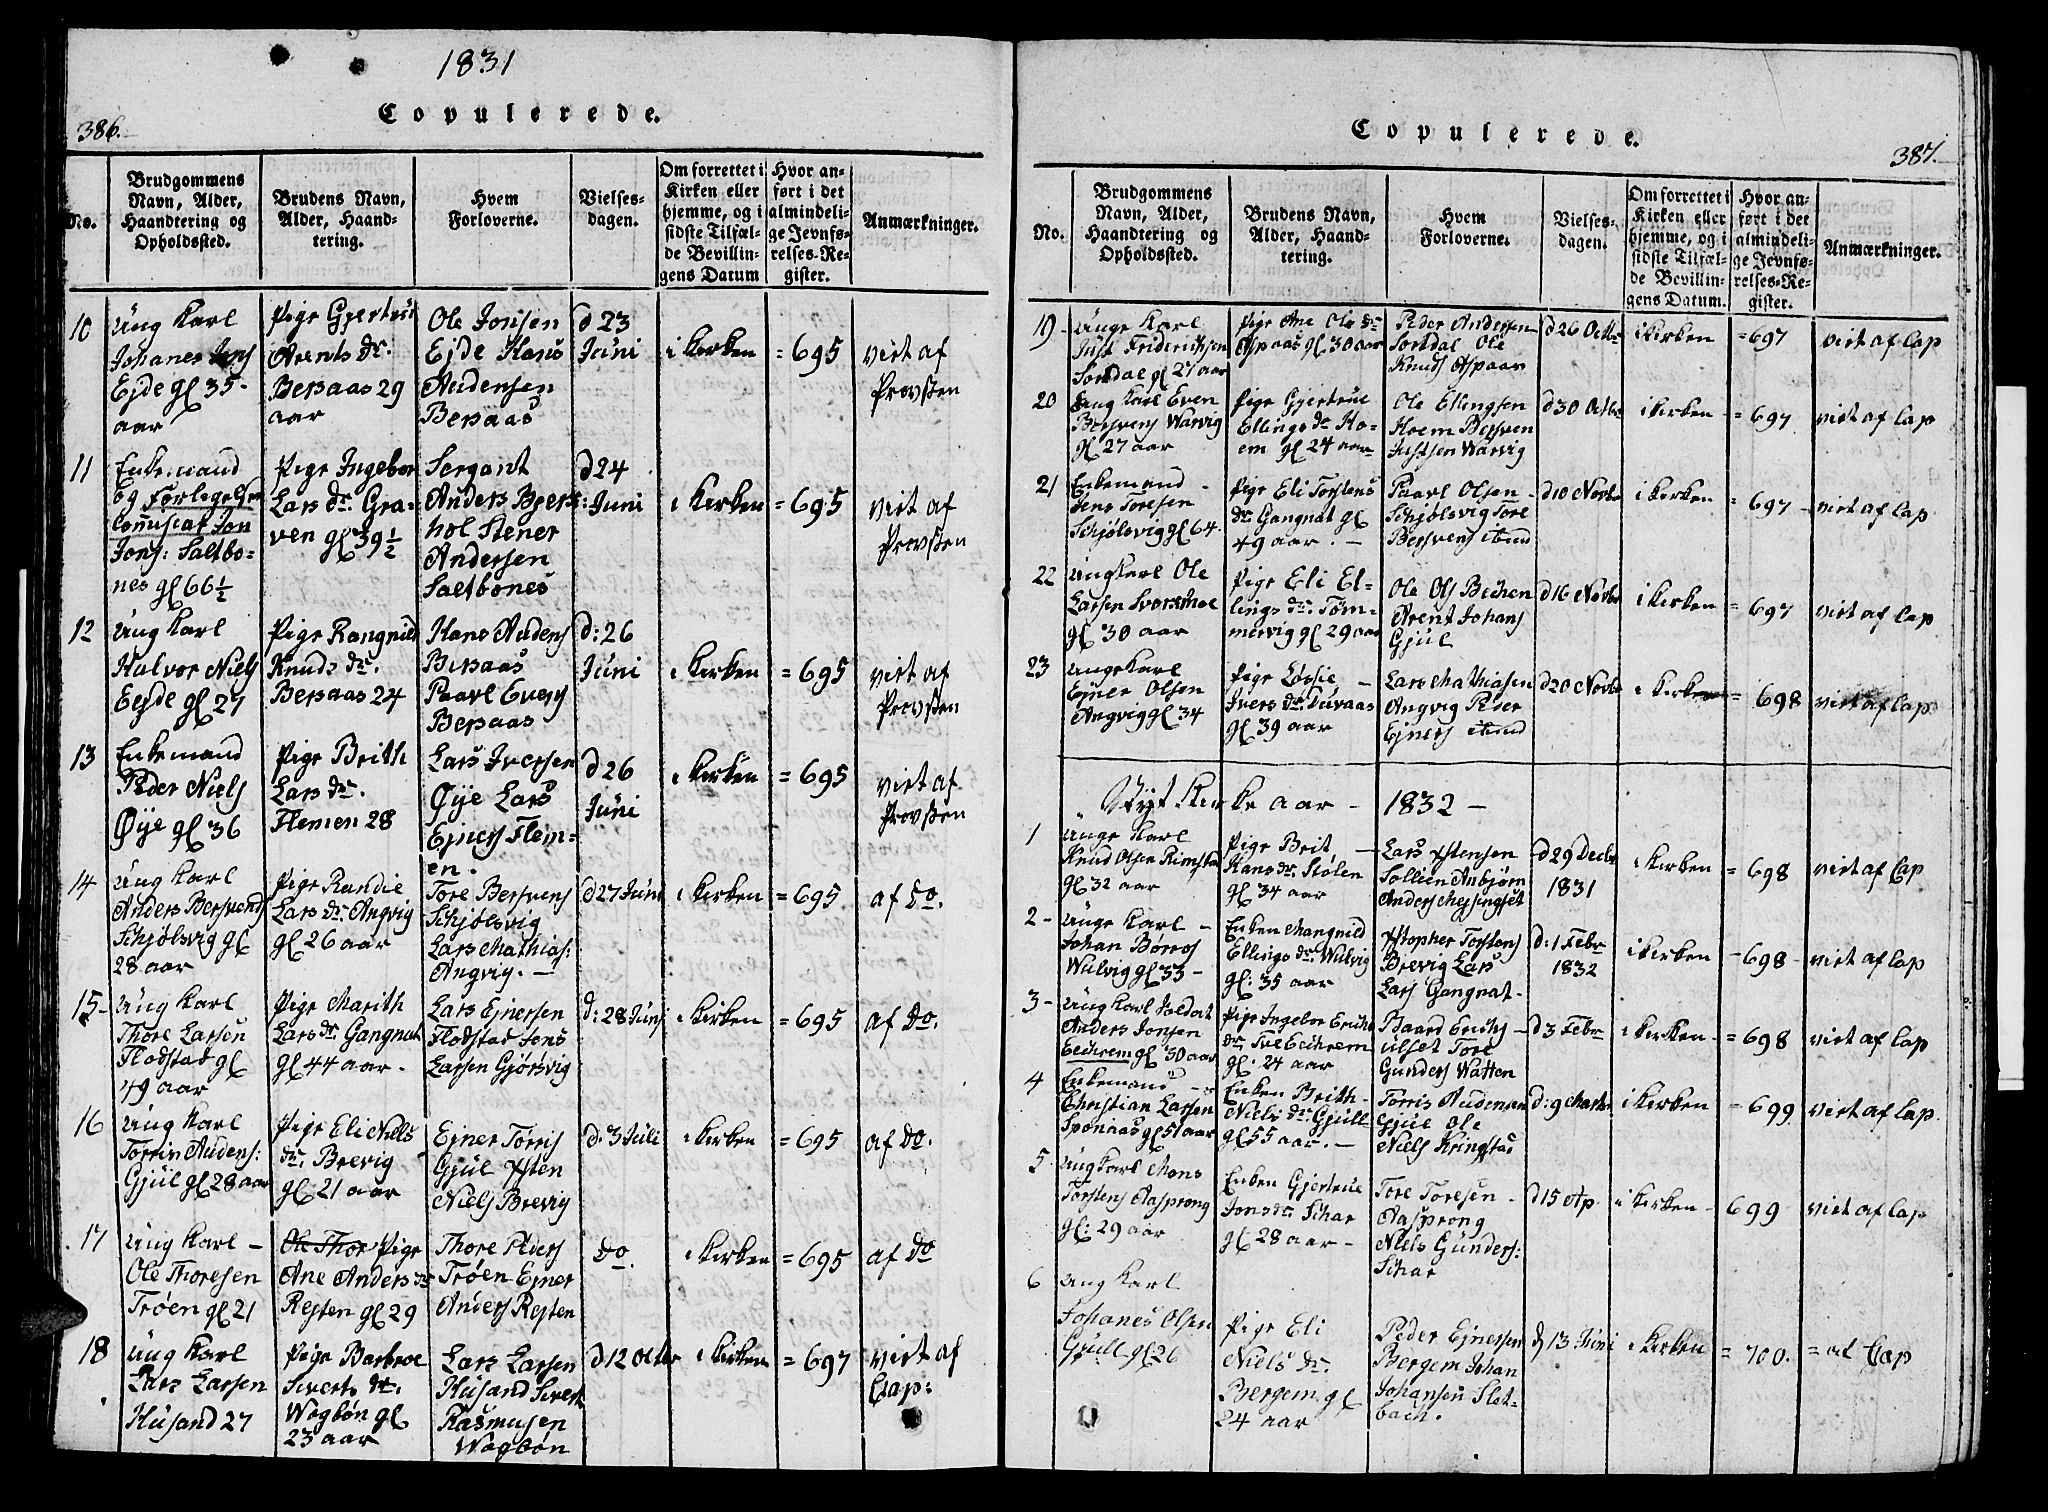 1831
386.
Copulerede.
No.
Brudgommens
Navn, Alder,
Haandtering og
Opholdssted.
Brudens Navn,
Alder, Haand-
tering.
Hvem
Forloverne.
Vielses-
dagen.
Om forrettet i
Kirken eller
hjemme, og i
sidste Tilfæl-
de Bevillin-
gens Datum
Hvor an-
ført i det
almindeli-
ge Jevnfø-
relses-Re-
gister.
Anmærkninger.
10
Ung Karl
Johanes Jons
Ejde gl 35-
aar
Pige Gjertrud
Arents dr.
Bersaas 29
aar
Ole Jonsen
Ejde Hans
Audensen
Bersaas
d 23
Juni
i Kirken
= 695
viet af
Provsten
11
Enkemand
og Forlegelse
Comissar Jon
Jons: Saltbo-
nes gl 66 1/2
Pige Ingebor
Lars dr. Gra-
ven gl 39 1/2
Sergant
Anders Bjerk
hol Stener
Andersen
Saltbones
d 24
Juni
i Kirken
= 695
viet af
Provsten
12
Ung Karl
Halvor Niels
Eejde gl 27
Pige Rangnild
Knuds dr.
Bersaas 24
Hans Audens
Bersaas
Paavl Evens
Bersaas
d: 26
Juni
i Kirken
= 695
viet af
Provsten
13
Enkemand
Peder Niels
Øije gl 36
Pige Brith
Lars dr.
Flemen 28
Lars Iversen
Øije Lars
Ejners Flem-
en.
d 26
Juni
i Kirken
= 695
viet af
Provsten
14
Ung Karl
Anders Bersvends
Schjølsvig gl
28 aar
Pige Randie
Lars dr. Angvig
gl 26 aar
Tore Bersvens
Schjølsvig
Lars Mathias:
Angvig. -
d 27 Juni
i Kirken
= 695
af do.
15-
Ung Karl
Thore Larsen
Flodstad gl
49 aar
Pige Marith
Lars dr Gangnat
gl 44 aar -
Lars Ejnersen
Flodstad Jons
Larsen Gjørsvig
d: 28 Juni
i Kirken
= 695
af do.
16
Ung Karl
Torris Audens:
Gjul gl 28 aar
Pige Eli Niels
dr. Brevig
gl 21 aar
Ejner Torris
Gjul Østen
Niels Brevig
d. 3 Juli
i Kirken
= 695
af do.
17
Ung Karl -
Ole Thoresen
Trøen gl 21
Ole Thor Pige
Ane Anders dr
Resten gl 29
Thore Peders
Trøen Ejner
Anders Resten
do.
i Kirken
= 695
af do
18
Ung Karl
Lars Larsen
Husand 27
Pige Barbroe
Siverts dr.
Wogbøn gl
23 aar
Lars Larsen
Husand Sivert
Rasmusen
Wogbøn
d 12 Octbr
i Kirken
= 697
viet af
Cap:
Copulerede.
387.
No.
Brudgommens
Navn, Alder,
Haandtering og
Opholdssted.
Brudens Navn,
Alder, Haand-
tering.
Hvem
Forloverne.
Vielses-
dagen.
Om forrettet i
Kirken eller
hjemme, og i
sidste Tilfæl-
de Bevillin-
gens Datum.
Hvor an-
ført i det
almindeli-
ge Jevnfø-
relses-Re-
gister.
Anmærkninger.
19-
Unge Karl
Just Friderichsen
Tordal gl 27 aar
Pige Ane Ole dr
Ospaas gl 30 aar
Peder Andersen
Tordal Ole
Knuds Ospaas
d 26 Octbr
i Kirken
= 697
viet af Cap
20
Ung Karl Even
Bersvens Warvig
gl 27 aar
Pige Gjertrue
Ellings dr Ho-
em gl 24 aar
Ole Ellingsen
Hoem Bersven
Justsen Warvig
d 30 Octbr
i Kirken
= 697
viet af Cap
21
Enkemand -
Jens Toresen
Schjølsvig gl 64.
Pige Eli Torstens
dr. Gangnat gl
49 aar. -
Paavl Olsen -
Schjølsvig Tore
Bersvens ibmd
d 10 Novbr
i Kirken
= 697
viet af Cap
22
Ung Karl Ole
Larsen
gl 30 aar
Pige Eli El-
lings dr. Tøm-
mervig gl 29 aar
Ole Ols Bechen
Arent Johans
Gjul
d 16 Novbr
i Kirken
= 697
viet af Cap
23
Unge Karl
Ejner Olsen
Angvig gl 34
Pige Lovsie -
Ivers dr. Duvaas
gl 39 aar
Lars Mathiasen
Angvig Peder
Ejners ibmd
d 20 Novbr
i Kirken
= 698
viet af Cap
Nyt Kirke aar - 1832 -
1
Unge Karl
Knud Olsen Rimstad
gl 32 aar
Pige Brit -
Hans dr. Stølen
gl 34 aar
Lars Østensen
Sollien Anbjørn
Anders Mejsingset
d 29 Decbr
1831
i Kirken
= 698
viet af Cap
2-
Unge Karl -
Johan Børros
Wulvig gl 33 -
Enken Mangnild
Ellings dr. Wulvig
gl: 35 aar
Xstopher Torstens
Brevig Lars
Lars Gangnat-
d: 1 Febr
1832
i Kirken
- 698-
viet af Cap
3-
Ung Karl Soldat
Anders Jonsen
Eechrem gl 30 aar
Pige Ingebor Erichs
dr Eechrem
gl: 24 aar
Baard Erichs -
Ulset Tore
Gunders Watten
d 3 Febr
i Kirken
= 698
viet af Cap
4
Enkemand -
Christian Larsen
gl 51 aar
Enken Brith-
Niels dr. Gjull
gl 55 aar. -
Torris Audensen
Gjul Ole
Niels Kringstad
d: 9 Marts
i Kirken
- 699
viet af Cap
5
Ung Karl Mons
Torstens Aasprong
gl: 29 aar
Enken Gjertrue
Jons dr. Schar
gl 28 aar -
Tore Toresen -
Aasprong
Niels Gunders:
Schar
d 15 Ap
i Kirken
699
viet af Cap
6
Ung Karl
Johanes Olsen
Gjull gl 26
Pige Eli
Niels dr.
Bergem gl
24 aar
Peder Ejnersen
Bergem Johan
Johansen Slet-
bach.
d 13 Juni
i Kirken
= 700.
= af Cap